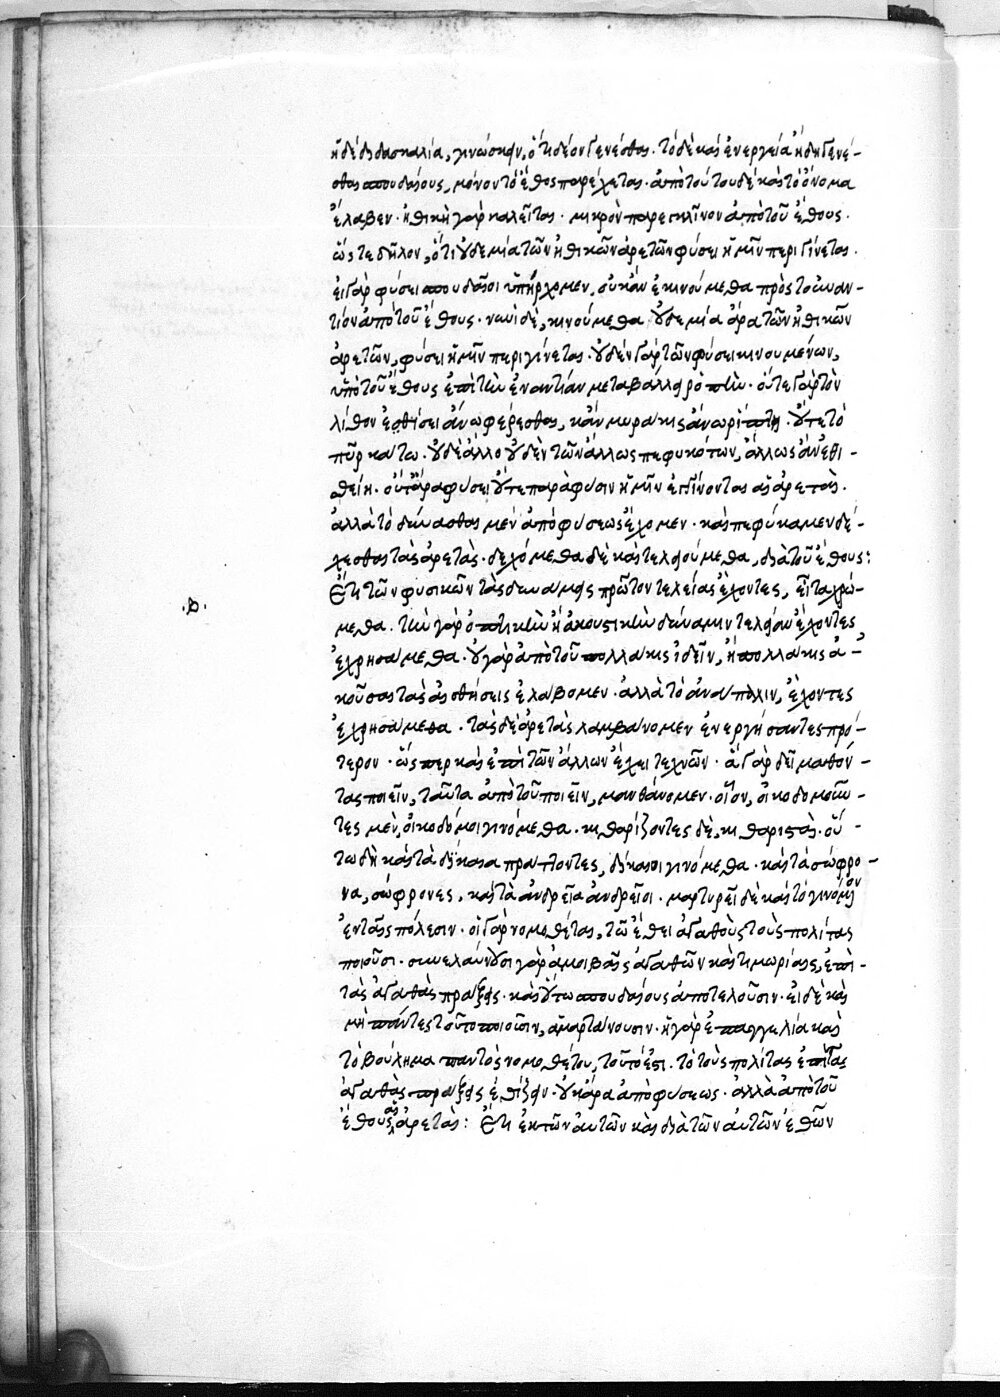 ἡ δὲ διδασκαλία, γινώσκειν, ὅτι δέον γενέσθαι. τὸ δὲ καὶ ἐνεργείᾳ ἤδη γενέ-
σθαι σπουδαίους, μόνον τὸ ἔθος παρέχεται. ἀπὸ τούτου δὲ καὶ τὸ ὄνομα
ἔλαβεν. ἠθικὴ γὰρ καλεῖται. μικρὸν παρεκκλῖνον ἀπὸ τοῦ ἔθους.
ὥστε δῆλον, ὅτι οὐδεμία τῶν ἠθικῶν ἀρετῶν φύσει ἡμῖν περιγίνεται.
εἰ γὰρ φύσει σπουδαῖοι ὑπήρχομεν, οὐκ ἂν ἐκινούμεθα πρὸς τὸ ἐναν-
τίον ἀπὸ τοῦ ἔθους. νυνὶ δὲ, κινούμεθα οὐδεμία ἄρα τῶν ἠθικῶν
ἀρετῶν, φύσει ἡμῖν περιγίνεται. οὐδὲν γὰρ τῶν φύσει κινουμένων,
ὑπὸ τοῦ ἔθους ἐπὶ τὴν ἐναντίαν μεταβάλλει ῥοπήν. οὔτε γὰρ τὸν
λίθον ἐθίσει ἄνω φέρεσθαι, κἂν μυράκις ἄνω ῥίπτῃ. οὔτε τὸ
πῦρ κάτω. οὐδὲ ἄλλο οὐδὲν τῶν ἄλλως πεφυκότων, ἄλλως ἂν ἐθι-
σθείη. οὔτ' ἄρα φύσει οὔτε παρὰ φύσιν ἡμῖν ἐγγίνονται αἱ ἀρεταί.
ἀλλὰ τὸ δύνασθαι μὲν ἀπὸ φύσεως ἔχομεν. καὶ πεφύκαμεν δέ-
χεσθαι τὰς ἀρετάς. δεχόμεθα δὲ καὶ τελειούμεθα, διὰ τοῦ ἔθους:
Ἔτι τῶν φυσικῶν τὰς δυνάμεις πρῶτον τελείας ἔχοντες, εἶτα χρώ-
μεθα. τὴν γὰρ ὀπτικὴν ἢ ἀκουστικὴν δύναμιν τελείαν ἔχοντες
ἐχρησάμεθα. οὐ γὰρ ἀπὸ τοῦ πολλάκις ἰδεῖν, ἢ πολλάκις ἀ-
κοῦσαι τὰς αἰσθήσεις ἐλάβομεν. ἀλλὰ τὸ ἀνάπαλιν, ἔχοντες
ἐχρησάμεθα. τὰς δὲ ἀρετὰς λαμβάνομεν ἐνεργήσαντες πρό-
τερον. ὥσπερ καὶ ἐπὶ τῶν ἄλλων ἔχει τεχνῶν. ἃ γὰρ δεῖ μαθόν-
τας ποιεῖν, ταῦτα ἀπὸ τοῦ ποιεῖν, μανθάνομεν. οἷον, οἰκοδομοῦν-
τες μὲν, οἰκοδόμοι γινόμεθα. κιθαρίζοντες δὲ, κιθαρισταί. οὕ-
τω δὴ καὶ τὰ δίκαια πράττοντες, δίκαιοι γινόμεθα. καὶ τὰ σώφρο-
να, σώφρονες, καὶ τὰ ἀνδρεῖα ἀνδρεῖοι. μαρτυρεῖ δὲ καὶ τὸ γινόμενον
ἐν ταῖς πόλεσιν. οἱ γὰρ νομοθέται, τῶ ἔθει ἀγαθοὺς τοὺς πολίτας
ποιοῦσι. συνελαύνουσι γὰρ ἀμοιβαῖς ἀγαθῶν καὶ τιμωρίαις, ἐπὶ
τὰς ἀγαθὰς πράξεις. καὶ οὕτω σπουδαίους ἀποτελοῦσιν. εἰ δὲ καὶ
μὴ πάντες τοῦτο ποιοῦσιν, ἁμαρτάνουσιν. ἡ γὰρ ἐπαγγελία καὶ
τὸ βούλημα παντὸς νομοθέτου, τοῦτό ἐστι. τὸ τοὺς πολίτας ἐπὶ τὰς
ἀγαθὰς πράξεις ἐθίζειν. οὐκ ἄρα ἀπὸ φύσεως. ἀλλὰ ἀπὸ τοῦ
ἔθους αἱ ἀρεταί: Ἔτι ἐκ τῶν αὐτῶν καὶ διὰ τῶν αὐτῶν ἐθῶν